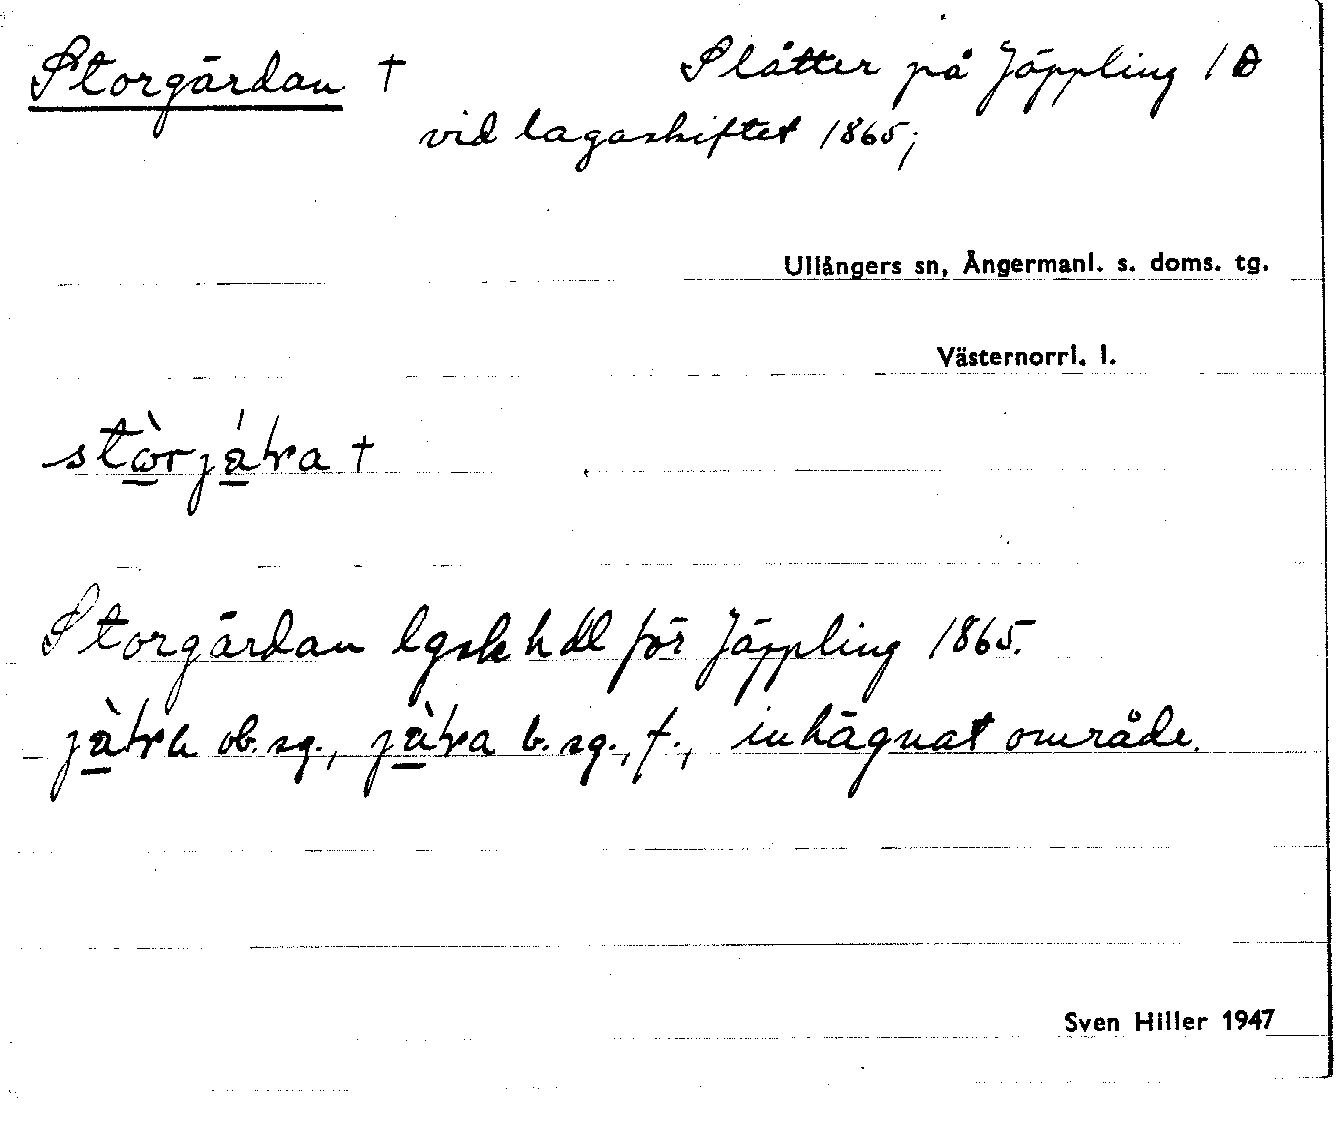 Storgärdan † Slåtter på Jäppling 1
vid lagaskiftet 1865;
Ullångers sn, Ångermanl. s. doms. tg.
Västernorrl. l.
Storgärdan lgskhdl för Jäppling 1865.
ob. sg., b. sg., f., inhägnat område.
Sven Hiller 1947